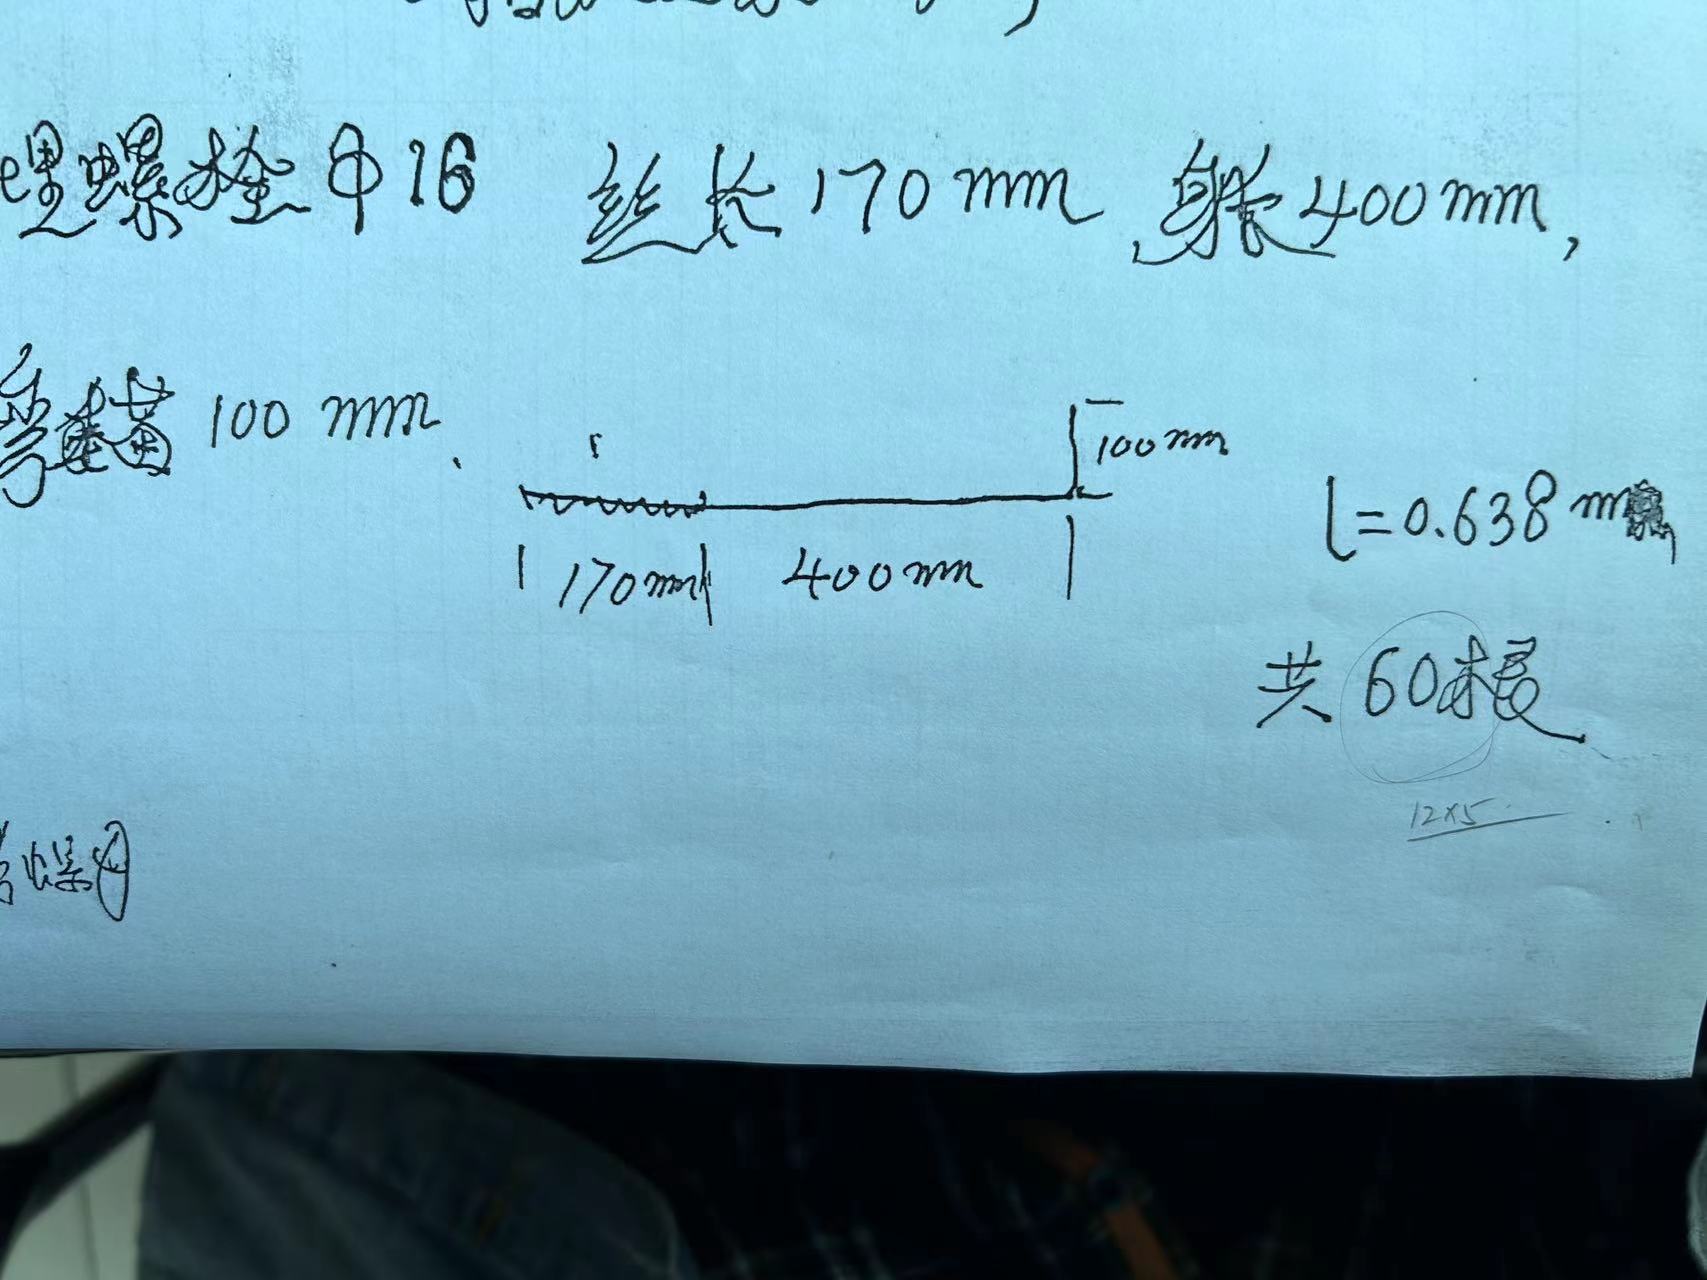 埋螺栓Φ16 丝长170mm,身长400mm,
弯锚100mm.
100mm
170mm 400mm
l=0.638m
共60根
12×5
螺母